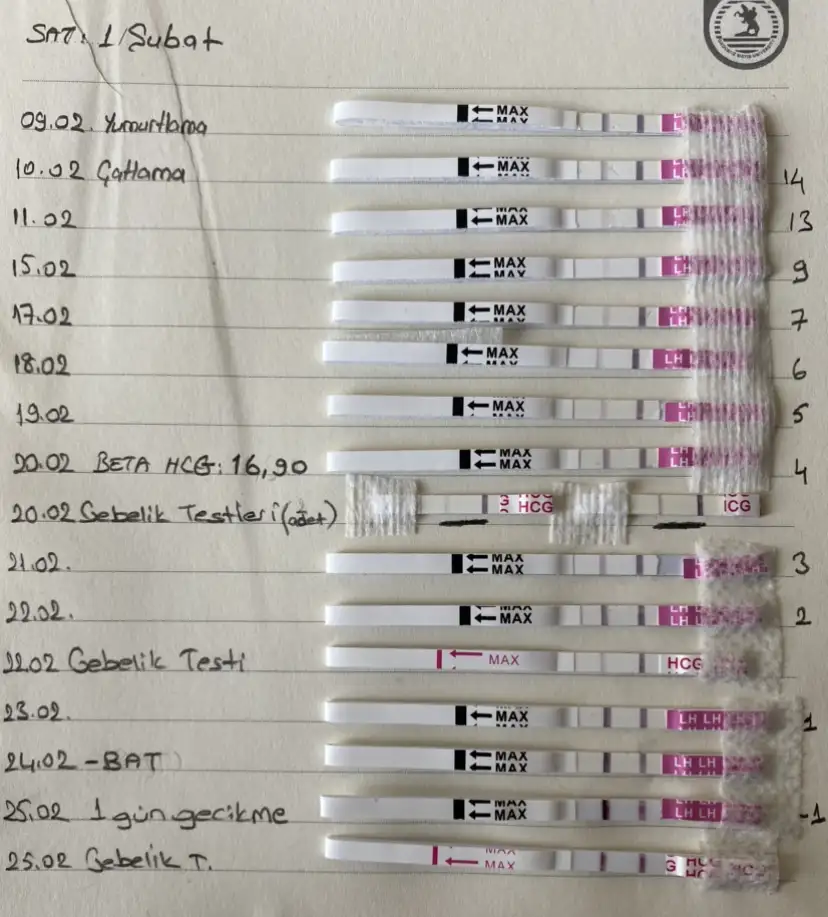 SAT: 1/Şubat
09.02. Yumurtlama MAX
10.02 Çatlama MAX LH 14
11.02 MAX LH 13
15.02 MAX LH 9
17.02 MAX LH 7
18.02 MAX LH 6
19.02 MAX LH 5
20.02 BETA HCG: 16,90 MAX LH 4
20.02 Gebelik Testleri (adet) HCG HCG
21.02. MAX MAX 3
22.02. MAX LH 2
22.02 Gebelik Testi MAX HCG
23.02. MAX LH LH 1
24.02 - BAT MAX MAX LH LH
25.02 1 gün gecikme MAX MAX LH LH -1
25.02 Gebelik T. MAX MAX HCG